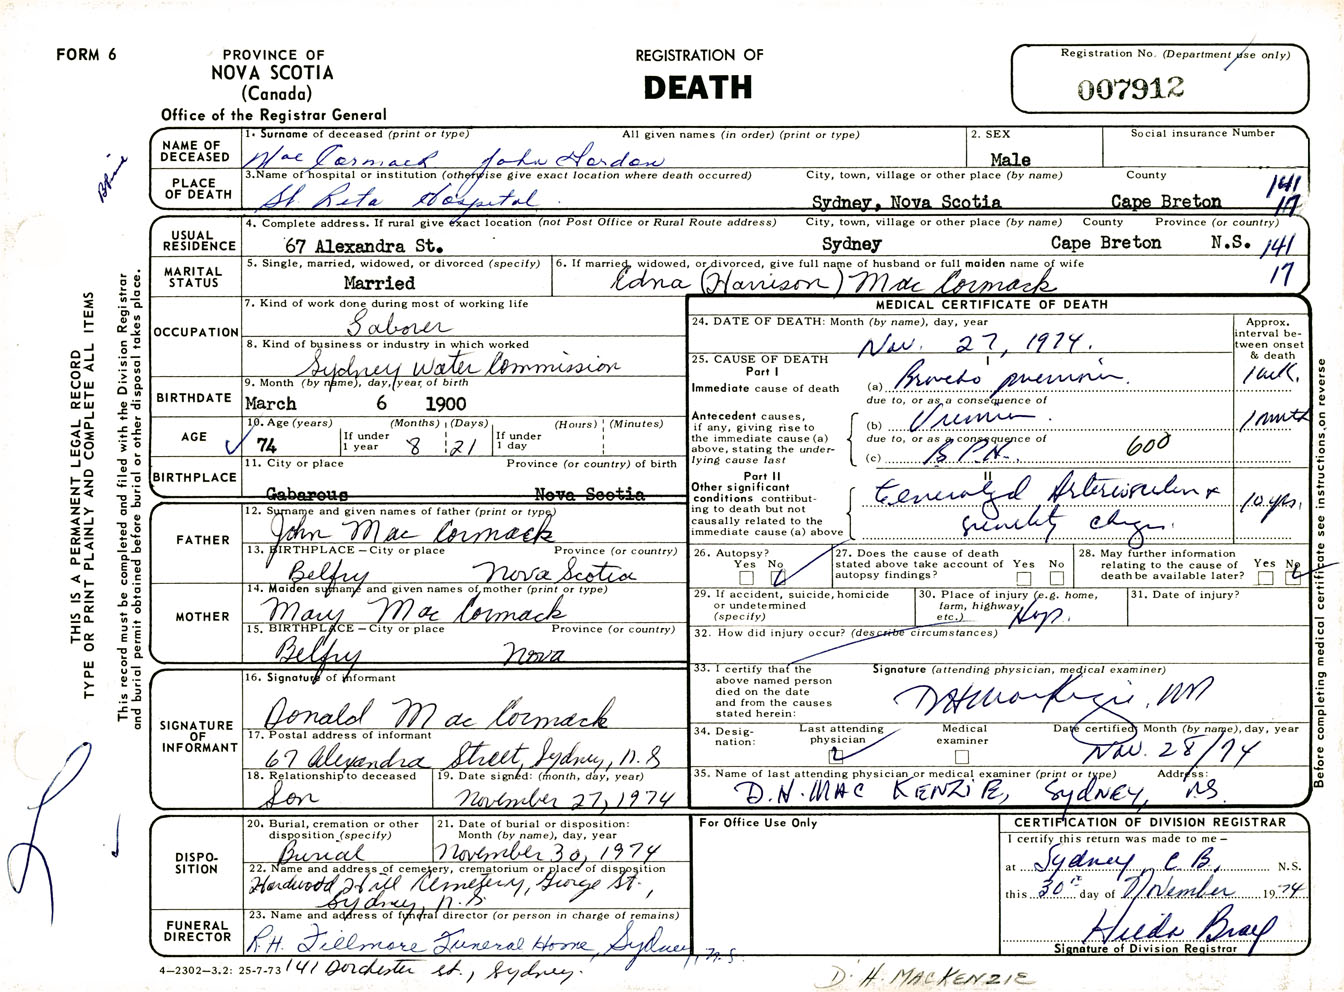 FORM 6
PROVINCE OF
NOVA SCOTIA
(Canada)
Office of the Registrar General
REGISTRATION OF
DEATH
Registration No. (Department use only)
007912
NAME OF DECEASED
1. Surname of deceased (print or type) All given names (in order) (print or type)
Mac Cormack John Gordon
2. SEX
Male
Social insurance Number
PLACE OF DEATH
3. Name of hospital or institution (otherwise give exact location where death occurred) City, town, village or other place (by name) County
St. Rita Hospital Sydney, Nova Scotia Cape Breton 141
17
USUAL RESIDENCE
4. Complete address. If rural give exact location (not Post Office or Rural Route address) City, town, village or other place (by name) County Province (or country)
67 Alexandra St. Sydney Cape Breton N.S. 141
17
MARITAL STATUS
5. Single, married, widowed, or divorced (specify)
Married
6. If married, widowed, or divorced, give full name of husband or full maiden name of wife
Edna (Harrison) Mac Cormack
OCCUPATION
7. Kind of work done during most of working life
Laborer
8. Kind of business or industry in which worked
Sydney Water Commission
BIRTHDATE
9. Month (by name), day, year of birth
March 6 1900
AGE
10. Age (years) (Months) (Days) (Hours) (Minutes)
74 If under 1 year 8 21 If under 1 day
BIRTHPLACE
11. City or place Province (or country) of birth
Gabarous Nova Scotia
FATHER
12. Surname and given names of father (print or type)
John Mac Cormack
13. BIRTHPLACE – City or place Province (or country)
Belfry Nova Scotia
MOTHER
14. Maiden surname and given names of mother (print or type)
Mary Mac Cormack
15. BIRTHPLACE – City or place Province (or country)
Belfry Nova
SIGNATURE OF INFORMANT
16. Signature of informant
Donald Mac Cormack
17. Postal address of informant
67 Alexandra Street, Sydney, N.S
18. Relationship to deceased
Son
19. Date signed: (month, day, year)
November 27, 1974
DISPO-
SITION
20. Burial, cremation or other disposition (specify)
Burial
21. Date of burial or disposition: Month (by name), day, year
November 30, 1974
22. Name and address of cemetery, crematorium or place of disposition
Hardwood Hill Cemetery, George St.,
Sydney, N.S
FUNERAL DIRECTOR
23. Name and address of funeral director (or person in charge of remains)
R.H. Fillmore Funeral Home, Sydney, N.S.
4–2302–3.2: 25-7-73 141 Dorchester St., Sydney.
MEDICAL CERTIFICATE OF DEATH
24. DATE OF DEATH: Month (by name), day, year
Nov. 27, 1974.
Approx. interval be-
tween onset & death
25. CAUSE OF DEATH
Part I
Immediate cause of death (a) Broncho pneumonia. 1 wk.
due to, or as a consequence of
Antecedent causes, if any, giving rise to the immediate cause (a) above, stating the under-
lying cause last
(b) Uremia. 1 month
due to, or as a consequence of
(c) B.P.H. 600
Part II
Other significant conditions contribut-
ing to death but not causally related to the immediate cause (a) above
Generalized Arteriosclerosis &
senility changes. 10 yrs.
26. Autopsy?
Yes No
27. Does the cause of death stated above take account of autopsy findings?
Yes No
28. May further information relating to the cause of death be available later?
Yes No
29. If accident, suicide, homicide or undetermined (specify)
30. Place of injury (e.g. home, farm, highway, etc.)
Hosp.
31. Date of injury?
32. How did injury occur? (describe circumstances)
33. I certify that the above named person died on the date and from the causes stated herein:
Signature (attending physician, medical examiner)
D H MacKenzie, MD
34. Desig-
nation:
Last attending physician
Medical examiner
Date certified: Month (by name), day, year
Nov. 28/74
35. Name of last attending physician or medical examiner (print or type) Address:
D.H. MAC KENZIE, SYDNEY, NS.
For Office Use Only
CERTIFICATION OF DIVISION REGISTRAR
I certify this return was made to me –
at Sydney, C.B., N.S.
this 30th day of November 1974
Hilda Bray
Signature of Division Registrar
D. H. MACKENZIE
THIS IS A PERMANENT LEGAL RECORD
TYPE OR PRINT PLAINLY AND COMPLETE ALL ITEMS
This record must be completed and filed with the Division Registrar
and burial permit obtained before burial or other disposal takes place.
Before completing medical certificate see instructions on reverse